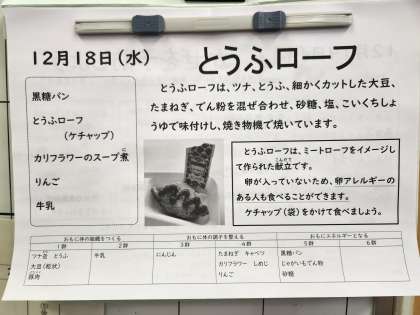 12月18日(水)
とうふローフ
黒糖パン
とうふローフ
(ケチャップ)
カリフラワーのスープ煮
りんご
牛乳
とうふローフは、ツナ、とうふ、細かくカットした大豆、
たまねぎ、でん粉を混ぜ合わせ、砂糖、塩、こいくちしょ
うゆで味付けし、焼き物機で焼いています。
とうふローフは、ミートローフをイメージし
て作られた献立です。
卵が入っていないため、卵アレルギーの
ある人も食べることができます。
ケチャップ(袋)をかけて食べましょう。
おもに体の組織をつくる おもに体の調子を整える おもにエネルギーとなる
1群 2群 3群 4群 5群 6群
ツナ缶 とうふ 牛乳 にんじん たまねぎ キャベツ 黒糖パン
大豆(粒状) カリフラワー しめじ じゃがいもでん粉
豚肉 りんご 砂糖